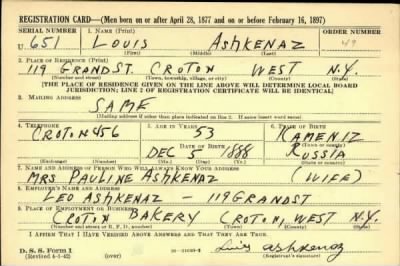 REGISTRATION CARD—(Men born on or after April 28, 1877 and on or before February 16, 1897)
SERIAL NUMBER 1. NAME (Print) ORDER NUMBER
U. 651 LOUIS AShKENAZ 49
(First) (Middle) (Last)
2. PLACE OF RESIDENCE (Print)
119 GRAND ST. CROTON WEST N.Y.
(Number and street) (Town, township, village, or city) (County) (State)
[THE PLACE OF RESIDENCE GIVEN ON THE LINE ABOVE WILL DETERMINE LOCAL BOARD
JURISDICTION; LINE 2 OF REGISTRATION CERTIFICATE WILL BE IDENTICAL]
3. MAILING ADDRESS
SAME
(Mailing address if other than place indicated on line 2. If same insert word same)
4. TELEPHONE 5. AGE IN YEARS 6. PLACE OF BIRTH
CROTON 456 53 KAMENIZ
DATE OF BIRTH (Town or county)
DEC 5 1888 RUSSIA
(Exchange) (Number) (Mo.) (Day) (Yr.) (State or country)
7. NAME AND ADDRESS OF PERSON WHO WILL ALWAYS KNOW YOUR ADDRESS
MRS PAULINE AShKENAZ (WIFE)
8. EMPLOYER'S NAME AND ADDRESS
LEO AShKENAZ — 119 GRAND ST
9. PLACE OF EMPLOYMENT OR BUSINESS
CROTON BAKERY CROTON, WEST N.Y.
(Number and street or R. F. D. number) (Town) (County) (State)
I AFFIRM THAT I HAVE VERIFIED ABOVE ANSWERS AND THAT THEY ARE TRUE.
D. S. S. Form 1
(Revised 4-1-42) (over) Louis Ashkenaz
(Registrant's signature)